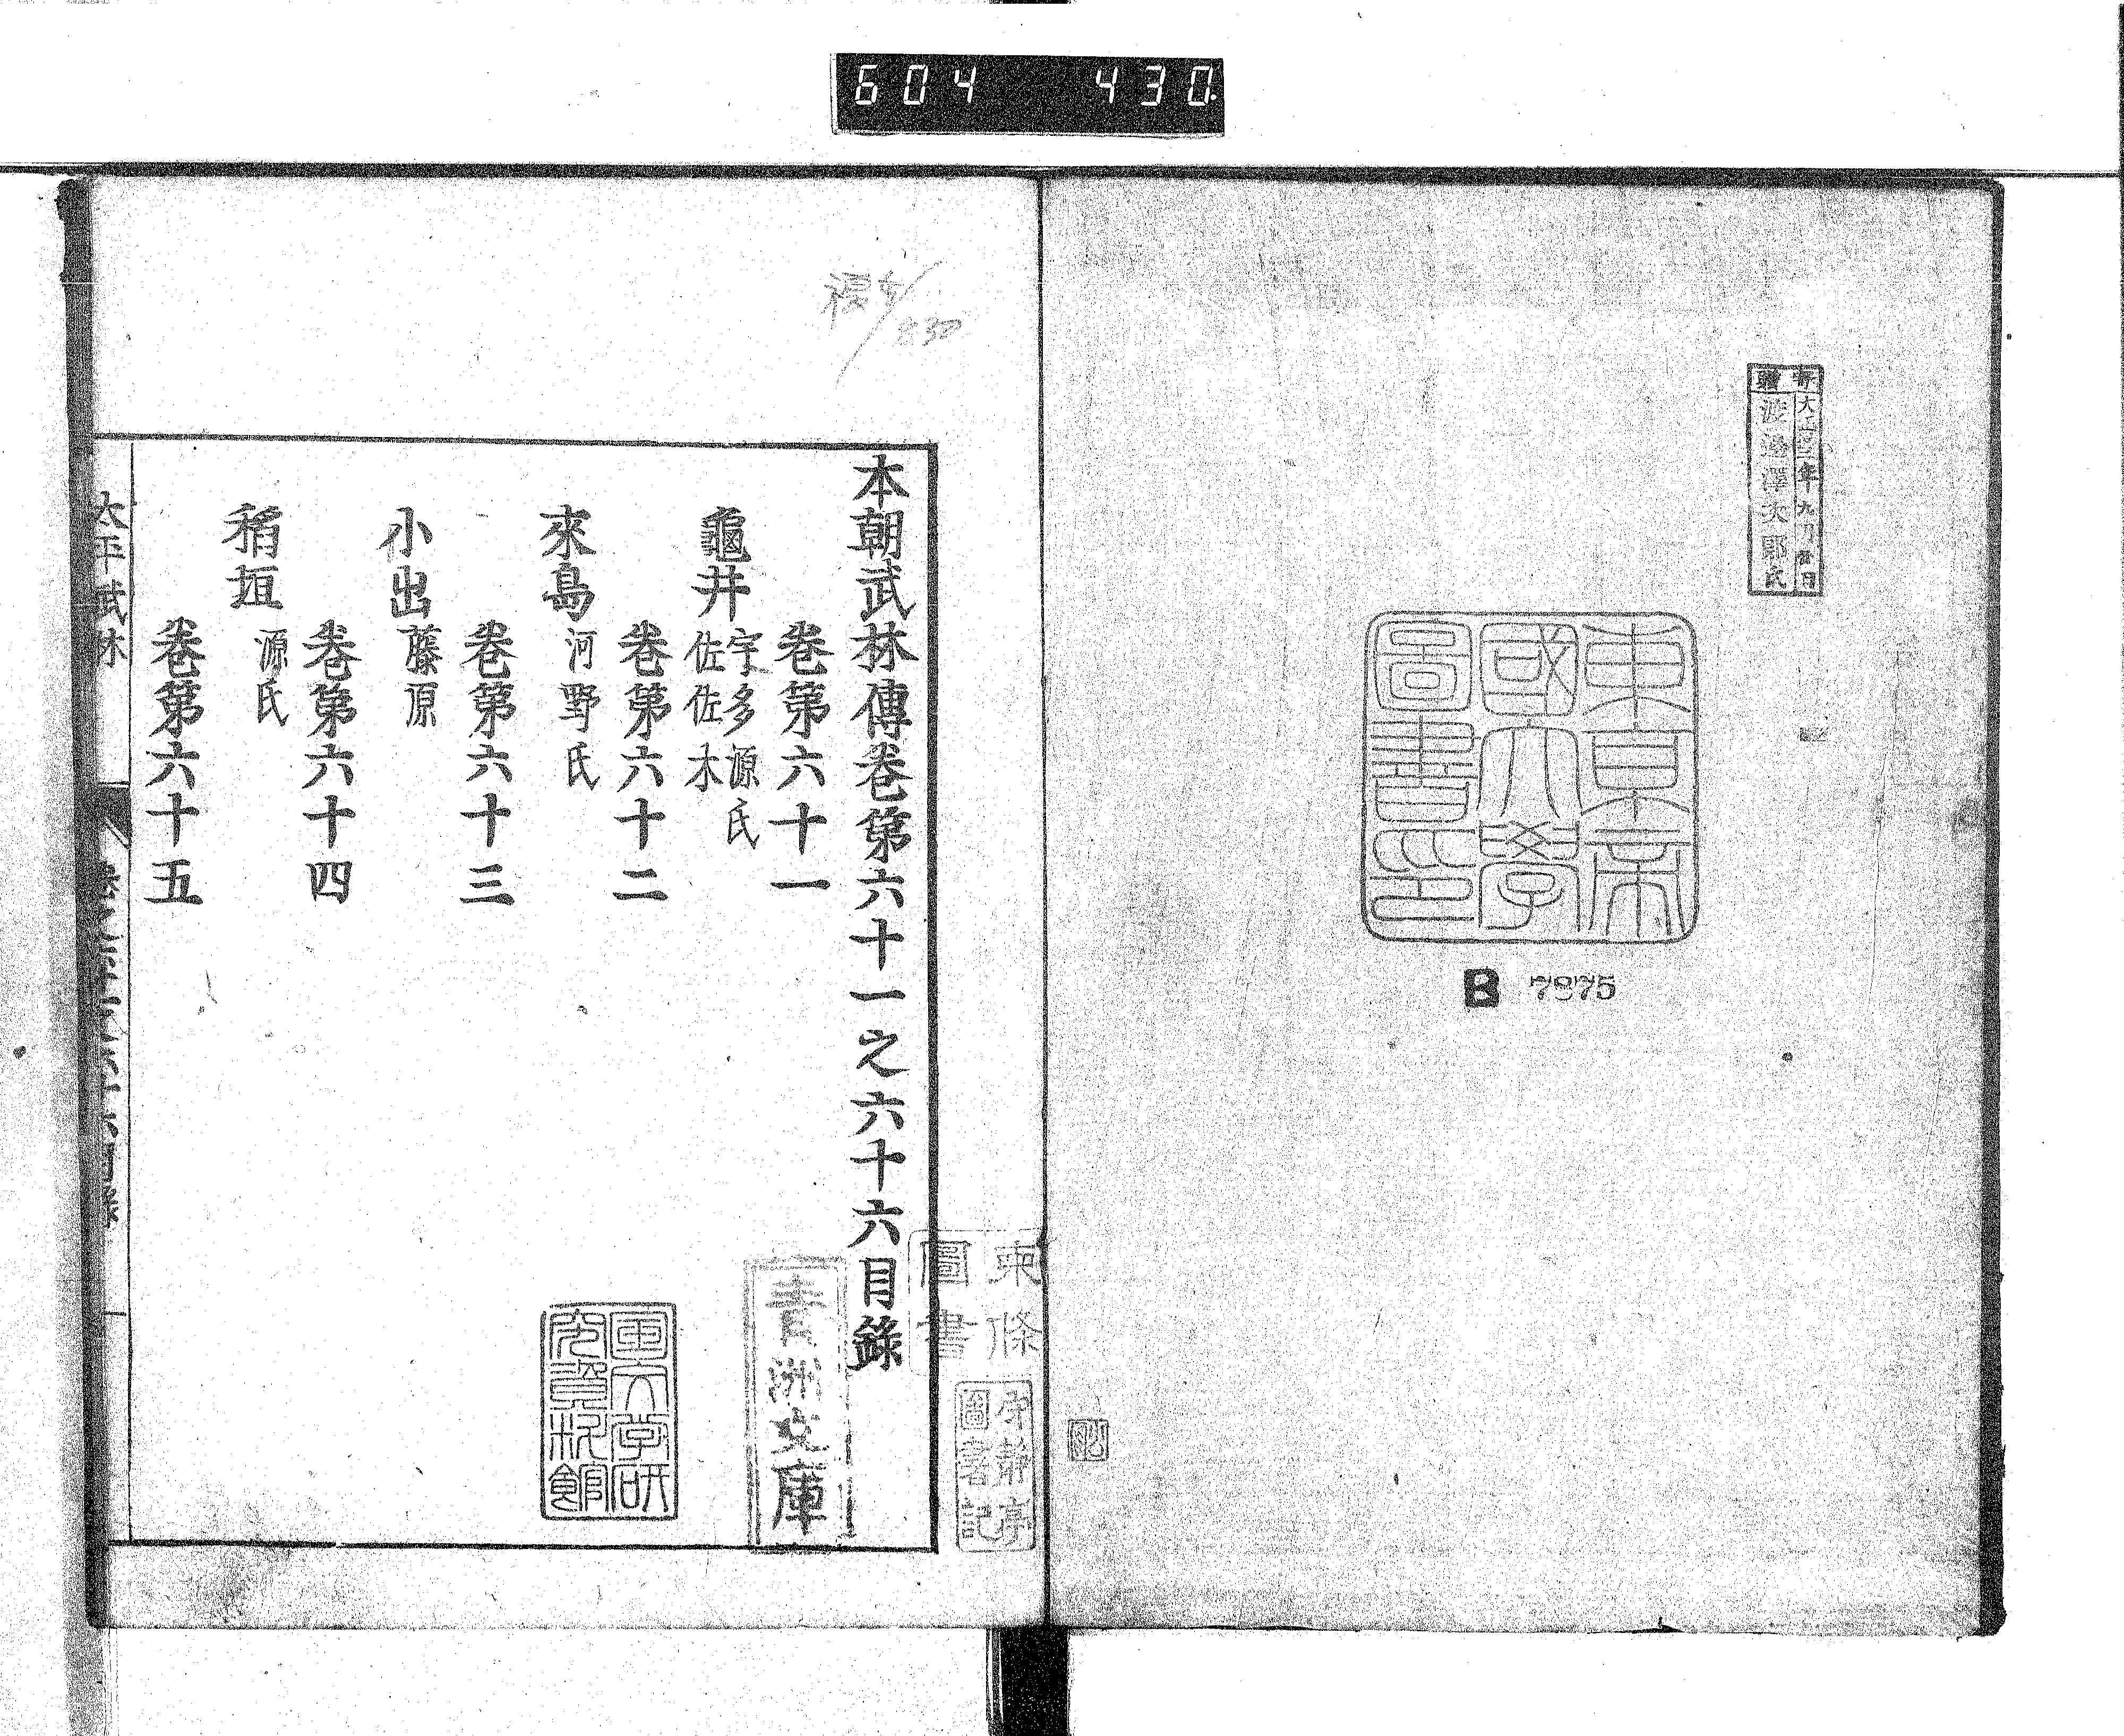 604 430
寄贈
大正十三年九月廿日
渡邊澤次郎氏
東京帝
國大學
圖書印
B 7875
本朝武林傳卷第六十一之六十六目錄
卷第六十一
龜井 宇多源氏
佐佐木
卷第六十二
來島 河野氏
卷第六十三
小出 藤原
卷第六十四
稻垣 源氏
卷第六十五
太平武林
東條
圖書
圖書記
青洲文庫
国文学研
究資料館